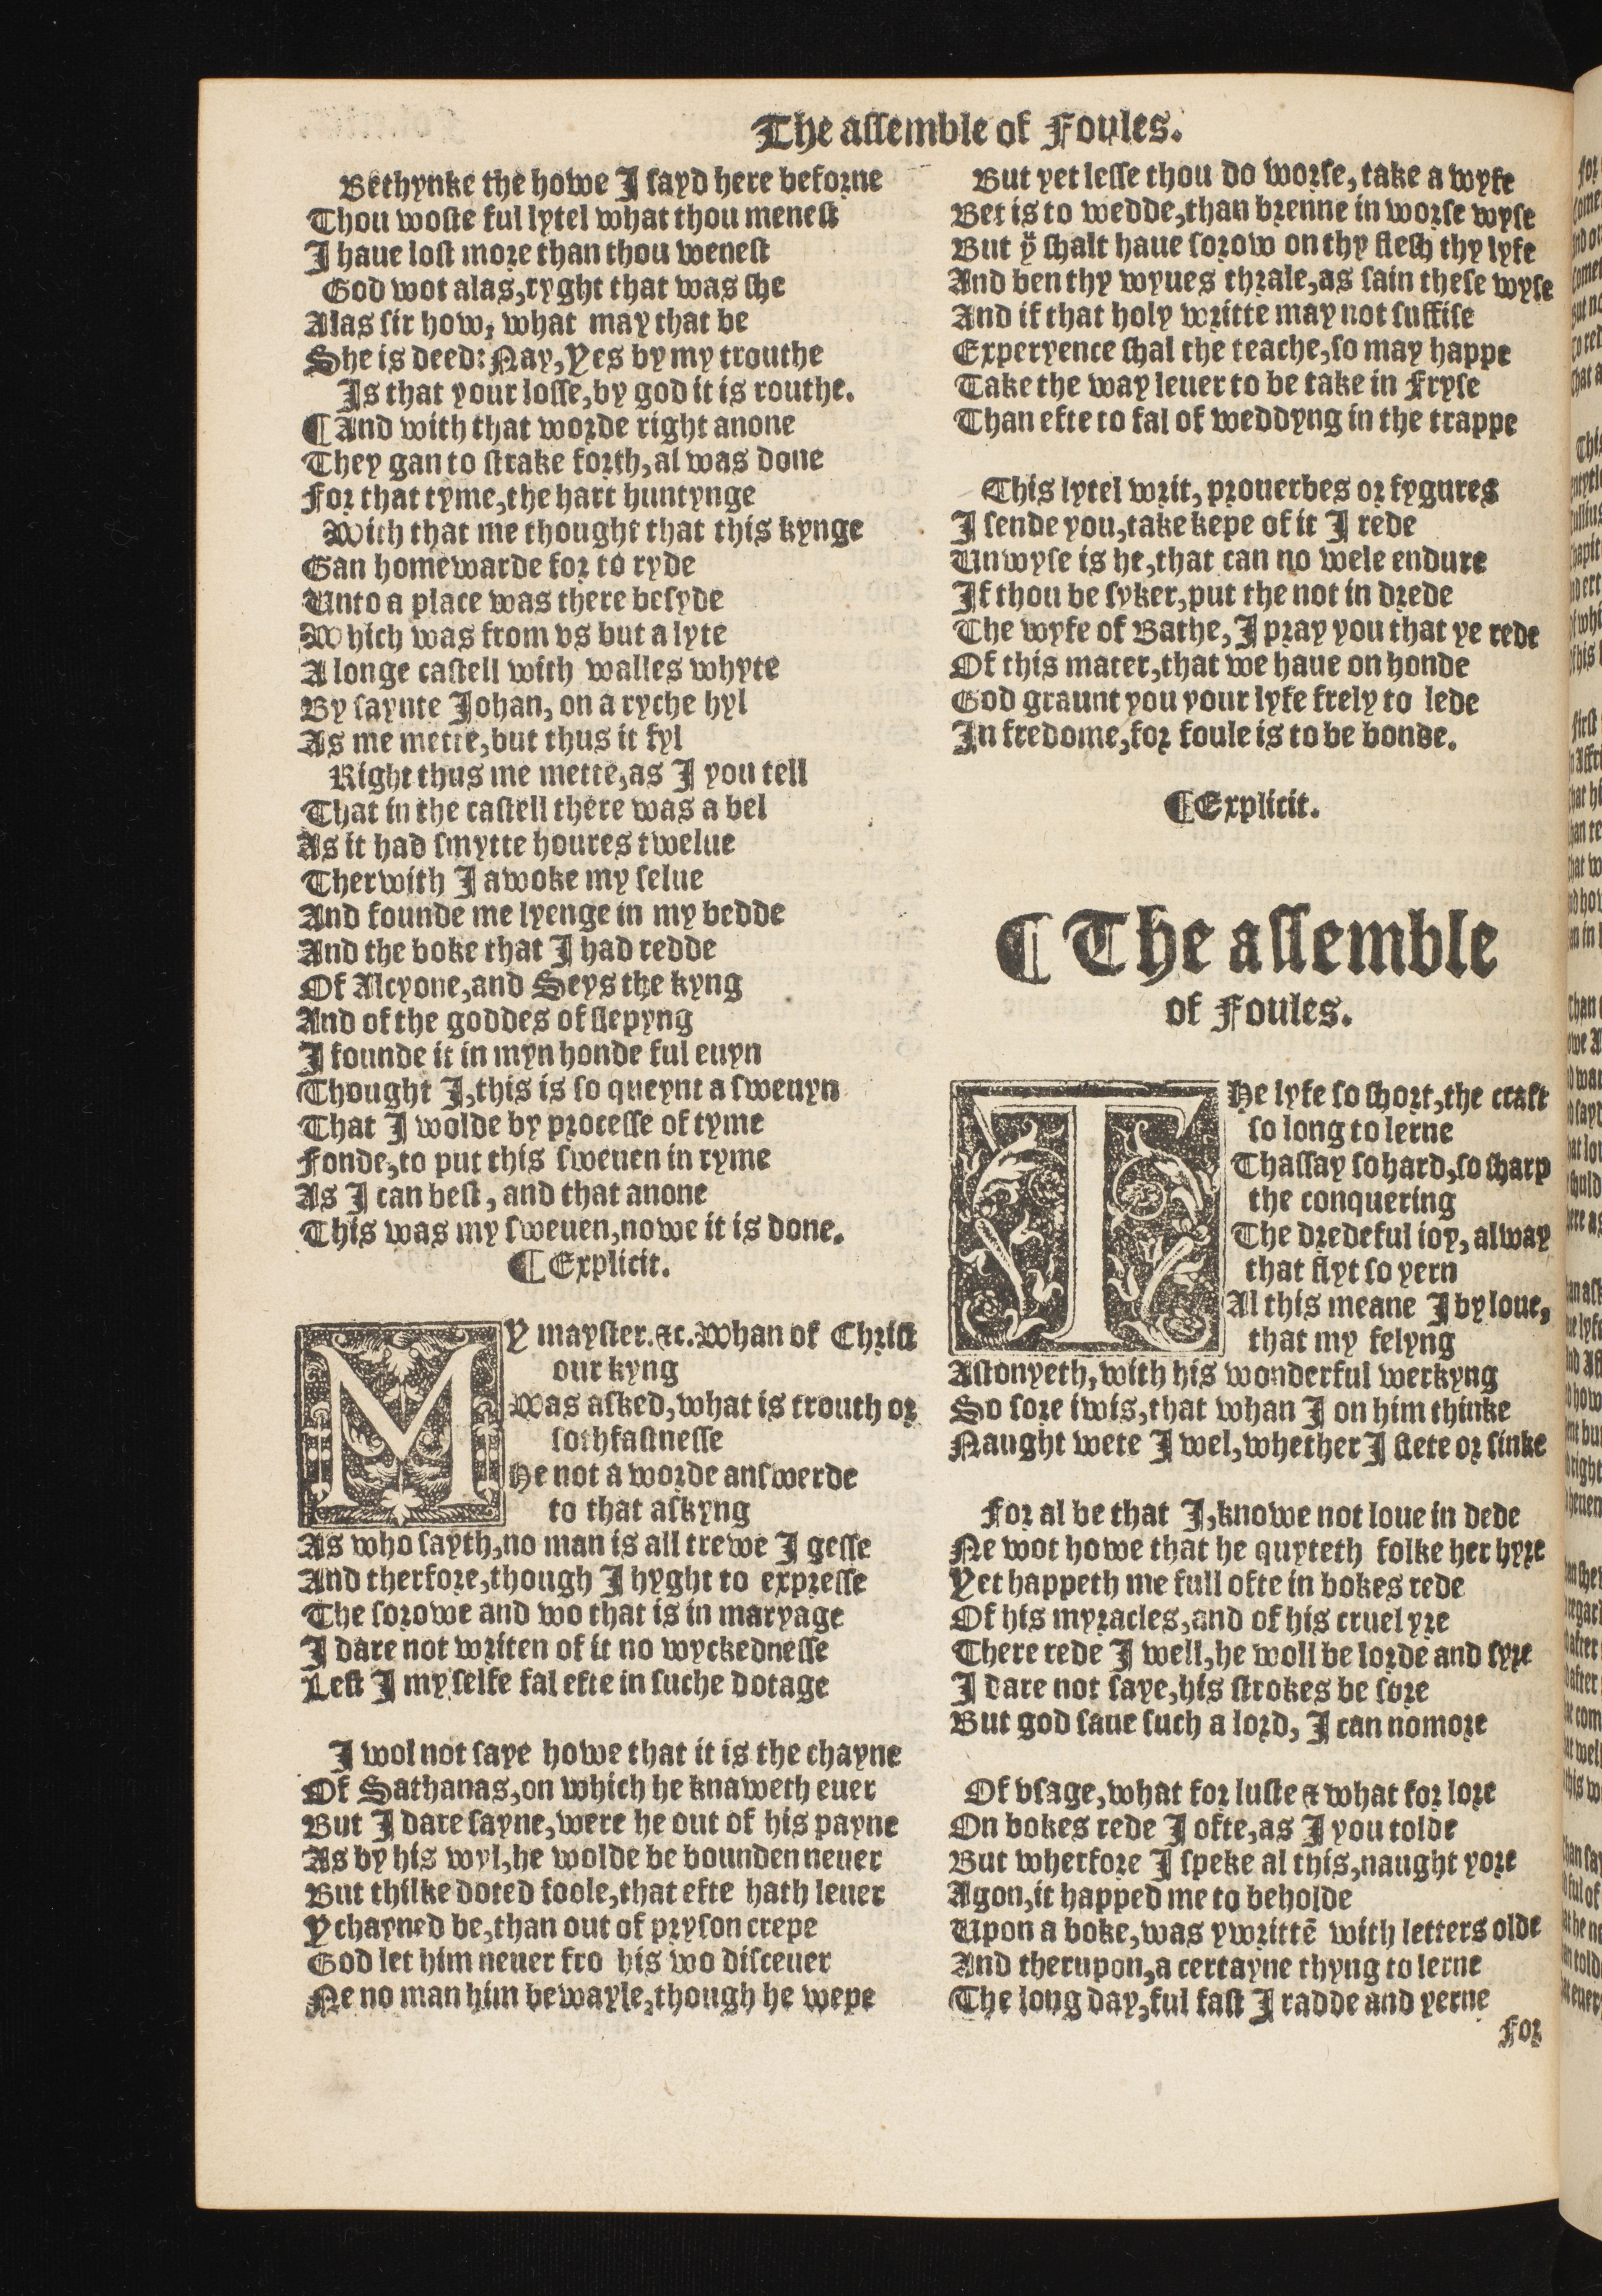 The assemble of Foules.
Bethynke the howe I sayd here beforne
Thou woste ful lytel what thou menest
I haue lost more than thou wenest
God wot alas, ryght that was she
Alas sir how, what may that be
She is deed: Nay, Yes by my trouthe
Is that your losse, by god it is routhe.
¶And with that worde right anone
They gan to strake forth, al was done
For that tyme, the hart huntynge
With that me thought that this kynge
Gan homewarde for to ryde
Unto a place was there besyde
Which was from vs but a lyte
A longe castell with walles whyte
By saynte Johan, on a ryche hyl
As me mette, but thus it fyl
Right thus me mette, as I you tell
That in the castell there was a bel
As it had smytte houres twelue
Therwith I awoke my selue
And founde me lyenge in my bedde
And the boke that I had redde
Of Alcyone, and Seys the kyng
And of the goddes of slepyng
I founde it in myn honde ful euyn
Thought I, this is so queynt a sweuyn
That I wolde by processe of tyme
Fonde, to put this sweuen in ryme
As I can best, and that anone
This was my sweuen, nowe it is done.
¶Explicit.
MY mayster. &c. Whan of Christ
our kyng
Was asked, what is trouth or
sothfastnesse
He not a worde answerde
to that askyng
As who sayth, no man is all trewe I gesse
And therfore, though I hyght to expresse
The sorowe and wo that is in maryage
I dare not writen of it no wyckednesse
Lest I my selfe fal efte in suche dotage
I wol not saye howe that it is the chayne
Of Sathanas, on which he knaweth euer
But I dare sayne, were he out of his payne
As by his wyl, he wolde be bounden neuer
But thilke doted foole, that efte hath leuer
Ychayned be, than out of pryson crepe
God let him neuer fro his wo disceuer
Ne no man him bewayle, though he wepe
But yet lesse thou do worse, take a wyfe
Bet is to wedde, than brenne in worse wyse
But yͧ shalt haue sorow on thy flesh thy lyfe
And ben thy wyues thrale, as sain these wyse
And if that holy writte may not suffise
Experyence shal the teache, so may happe
Take the way leuer to be take in Fryse
Than efte to fal of weddyng in the trappe
This lytel writ, prouerbes or fygures
I sende you, take kepe of it I rede
Unwyse is he, that can no wele endure
If thou be syker, put the not in drede
The wyfe of Bathe, I pray you that ye rede
Of this mater, that we haue on honde
God graunt you your lyfe frely to lede
In fredome, for foule is to be bonde.
¶Explicit.
¶The assemble
of Foules.
THe lyfe so short, the craft
so long to lerne
Thassay so hard, so sharp
the conquering
The dredeful ioy, alway
that flyt so yern
Al this meane I by loue,
that my felyng
Astonyeth, with his wonderful werkyng
So sore iwis, that whan I on him thinke
Naught wete I wel, whether I flete or sinke
For al be that I, knowe not loue in dede
Ne wot howe that he quyteth folke her hyre
Yet happeth me full ofte in bokes rede
Of his myracles, and of his cruel yre
There rede I well, he woll be lorde and syre
I dare not saye, his strokes be sore
But god saue such a lord, I can nomore
Of vsage, what for luste & what for lore
On bokes rede I ofte, as I you tolde
But wherfore I speke al this, naught yore
Agon, it happed me to beholde
Upon a boke, was ywrittē with letters olde
And therupon, a certayne thyng to lerne
The long day, ful fast I radde and yerne
For